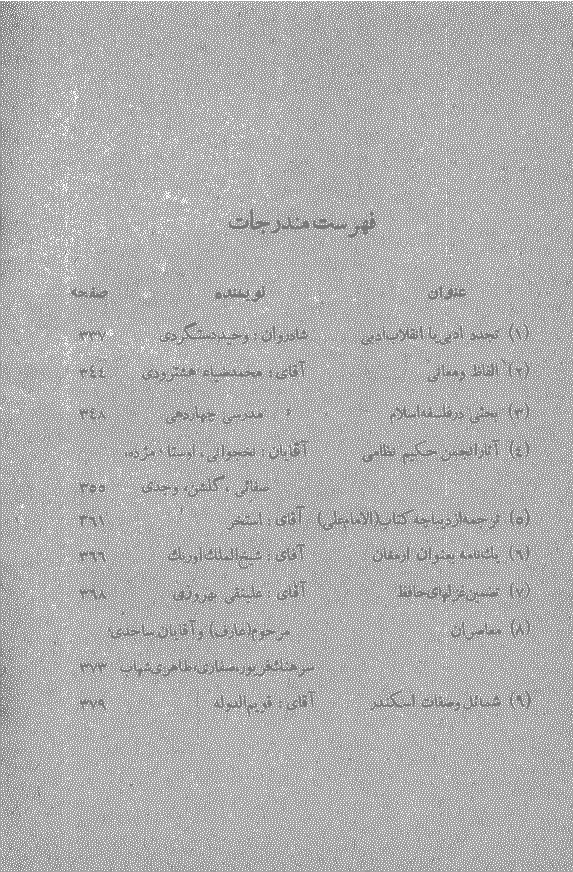 فهرست مندرجات
عنوان نویسنده صفحه
(۱) تجدد ادبی یا انقلاب ادبی شادروان : وحید دستگردی ۳۳۷
(۲) الفاظ ومعانی آقای : محمد ضیاء هشترودی ۳٤٤
(۳) بحثی درفلسفه اسلام » مدرسی چهاردهی ۳٤۸
(٤) آثار انجمن حکیم نظامی آقایان : نخجوانی ، اوستا ، مژده،
سفائی ، گلشن، وجدی ۳۵۵
(۵) ترجمه ازدیباچه کتاب(الامام علی) آقای : استخر ۳٦۱
(٦) یك نامه بعنوان ارمغان آقای : شیخ الملك اورنك ۳٦٦
(۷) تضمین غزلهای حافظ آقای : علینقی بهروزی ۳٦۸
(۸) معاصران مرحوم(عارف) و آقایان ساحدی؛
سرهنك فریور، صفاری، طاهری شهاب ۳۷۳
(۹) شمائل وصفات اسکندر آقای : قویم الدوله ۳۷۹